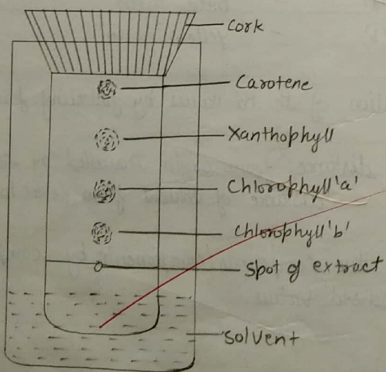 Cork
Carotene
Xanthophyll
Chlorophyll 'a'
Chlorophyll 'b'
Spot of extract
Solvent